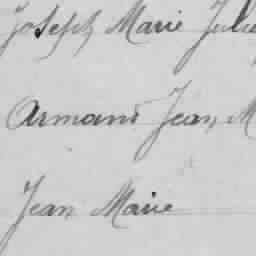 Joseph Marie Julie
Armand Jean M
Jean Marie